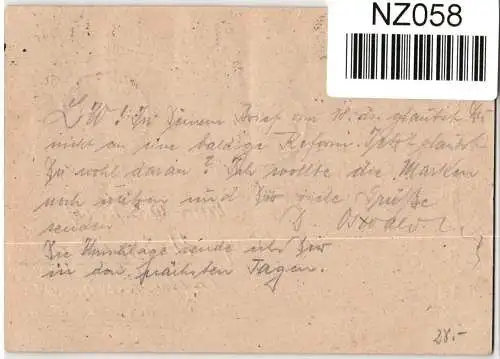 NZ058
L W! In Deinem Brief am 18. ds. glaubst Du
nicht an eine baldige Reform. Jetzt glaubst
Du wohl daran? Ich wollte die Marken
noch nützen und Dir viele Grüße
senden D. Oswald
Die Umschläge sende ich Dir
in den nächsten Tagen.
28.-